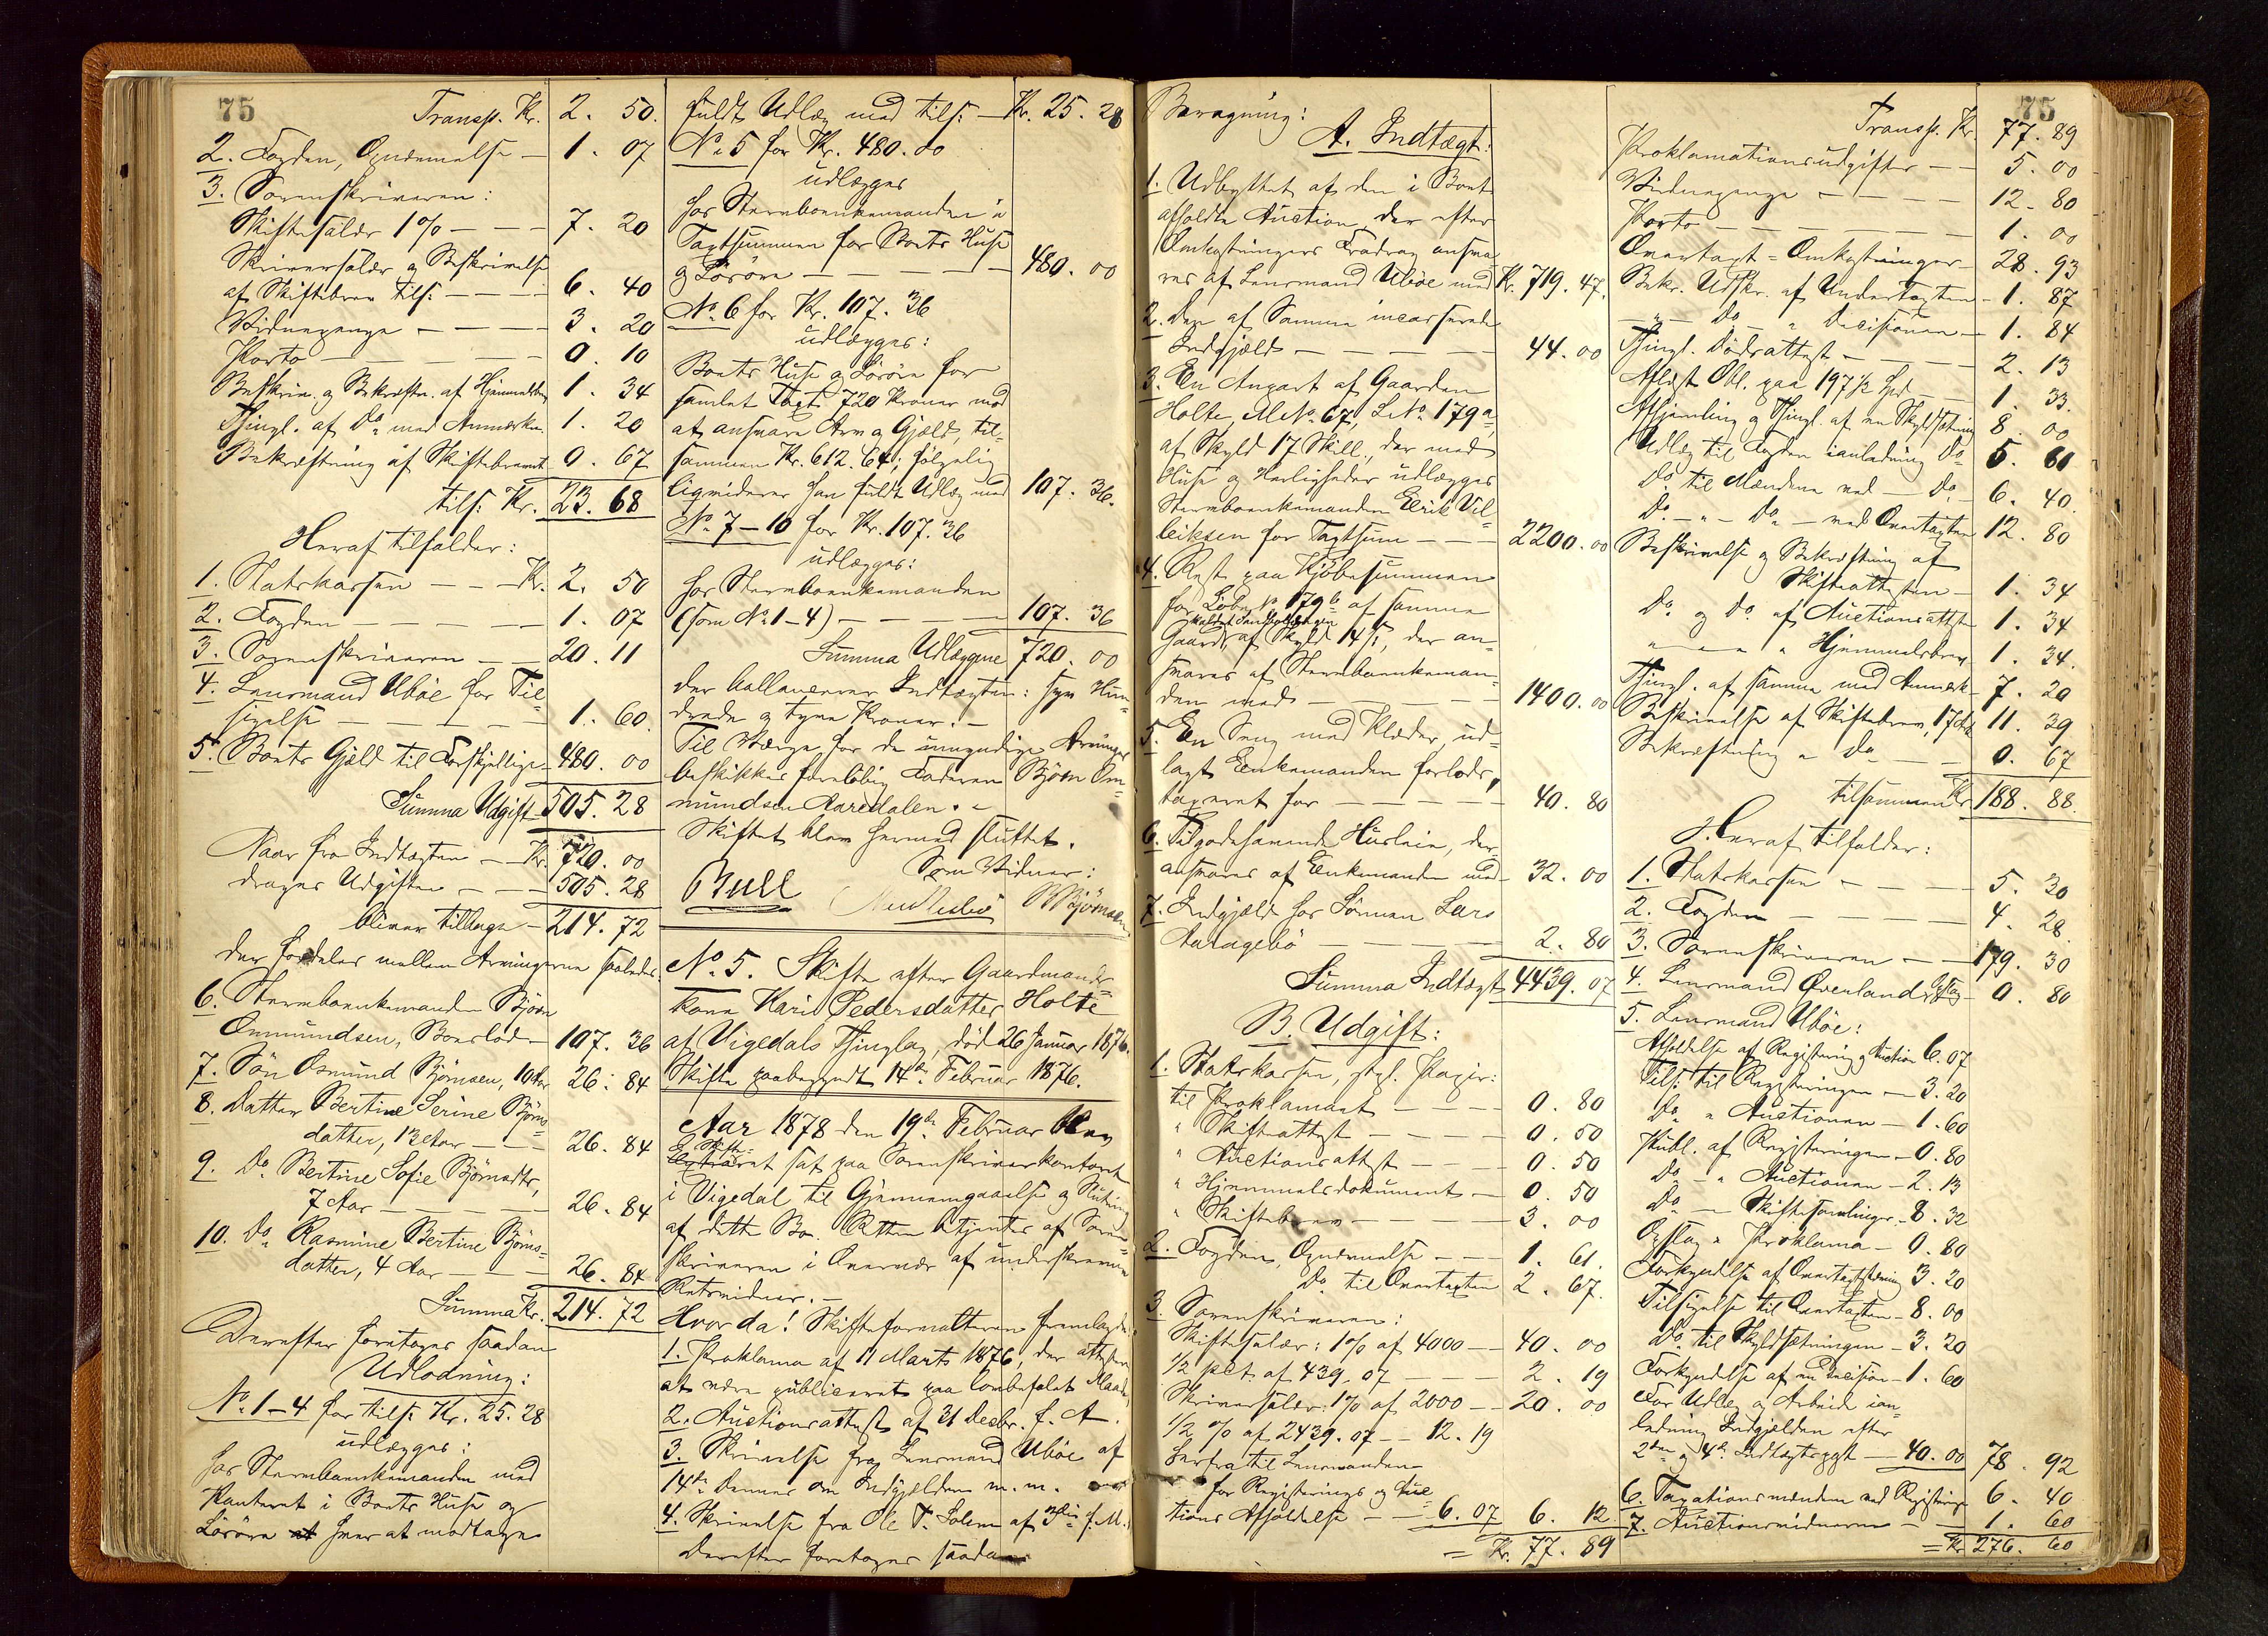 75
Transp. Kr. 2. 50.
2. Fogden, Opnævnelse — 1. 07
3. Sorenskriveren:
Skiftesalær 1% — — — 7. 20
Skriversalær og Beskrivelse
af Skiftebrev tils: — — — 6. 40
Vidnepenge — — — 3. 20
Porto — — — 0. 10
Beskriv. og Bekræftn. af Hjemmelsbrev 1. 34
Thingl. af Do med Anmærkn. 1. 20
Bekræftning af Skiftebrevet 0. 67
tils: Kr. 23. 68
Heraf tilfalder:
1. Statskassen — — Kr. 2. 50
2. Fogden — — — 1. 07
3. Sorenskriveren — — 20. 11
4. Lensmand Ubøe for Til-
sigelse — — — 1. 60
5. Boets Gjæld til Forskjellige 480. 00
Summa Udgift 505. 28
Naar fra Indtægten — Kr. 720. 00
drages Udgiften — — 505. 28
bliver tilbage — 214. 72
der fordeles mellem Arvingerne saaledes:
6. Stervboenkemanden Bjørn
Omundsen, Boeslod — 107. 36
7. Søn Osmund Bjørnsen, 10 Aar 26. 84
8. Datter Bertine Serine Bjørns-
datter, 13 Aar — — 26. 84
9. Do Bertine Sofie Bjørnsdtr,
7 Aar — — — 26. 84
10. Do Rasmine Bertine Bjørns-
datter, 4 Aar — — 26. 84
Summa Kr. 214. 72
Derefter foretages saadan
Udlodning:
No 1–4 for tils: Kr. 25. 28
udlægges:
hos Stervboenkemanden med
Panteret i Boets Huse og
Løsøre at hver at modtage
fuldt Udlæg med tils: — Kr. 25. 28
No 5 for Kr. 480. 00
udlægges
hos Stervboenkemanden i
Taxtsummen for Boets Huse
og Løsøre — — — 480. 00
No 6 for Kr. 107. 36
udlægges:
Boets Huse og Løsøre for
samlet Taxt 720 Kroner mod
at ansvare Arv og Gjæld, til-
sammen Kr. 612. 64; følgelig
liqviderer han fuldt Udlæg med 107. 36.
No 7–10 for Kr. 107. 36
udlægges:
hos Stervboenkemanden
(som No 1–4) — — — 107. 36
Summa Udlæggene 720. 00
der ballancerer Indtægten: syv Hun-
drede og tyve Kroner. —
Til Værge for de umyndige Arvinger
beskikkes foreløbig Faderen Bjørn Om-
mundsen Aaredalen. —
Skiftet blev hermed sluttet.
Som Vidner:
Bull BBjørnsen
No. 5. Skifte efter Gaardmands-
kone Kari Pedersdatter Holte
af Vigedals Thinglag, død 26 Januar 1876.
Skifte paabegyndt 14de Februar 1876.
Aar 1878 den 19de Februar blev
E. Skifte-
ret sat paa Sorenskriverkontoret
i Vigedal til Gjennemgaaelse og Slutning
af dette Bo. Retten betjentes af Soren-
skriveren i Overvær af underskrevne
Retsvidner. —
Hvorda! Skifteforvalteren fremlagde:
1. Proklama af 11 Marts 1876, der attesteres
at være publiceret paa lovbefalet Maade
2. Auctionsattest af 31 Decbr. f. A.
3. Skrivelse fra Lensmand Ubøe af
14de dennes om Indgjælden m. m.
4. Skrivelse fra Ole T. Solem af 3die f. M.
Derefter foretages saadan
Beregning:
A. Indtægt:
1. Udbyttet af den i Boet
afholdte Auction, der efter
Omkostningers Fradrag ansva-
res af Lensmand Ubøe med Kr. 719. 47.
2. Den af Samme incasserede
Indgjæld — — — 44. 00
3. En Anpart af Gaarden
Holte, M.No. 67, L.No. 179a,
af Skyld 17 Skill., der med
Huse og Herligheder udlægges
Stervboenkemanden Eerik Vil-
leiksen for Taxtsum — — 2200. 00
4. Rest paa Kjøbesummen
for Løbe No 179b af samme
Gaard, af Skyld 14 ß, der an-
svares af Stervboenkeman-
den med — — — 1400. 00
5. En Seng med Klæder, ud-
lagt Eenkemanden forlods,
taxeret for — — — 40. 80
6. Tilgodehavende Husleie, der
ansvares af Eenkemanden med 32. 00
7. Indgjæld hos Sønnen Lars
— — — 2. 80
Summa Indtægt 4439. 07
B. Udgift:
1. Statskassen, stpl. Papir:
til Proklamaet — — — 0. 80
" Skifteattest — — — 0. 50
" Auctionsattest — — — 0. 50
" Hjemmelsdokument — 0. 50
" Skiftebrev — — — 3. 00
2. Fogden, Opnævnelse — — 1. 61.
Do til Overtaxten 2. 67.
3. Sorenskriveren:
Skiftesalær: 1% af 4000 — 40. 00
1/2 pCt. af 439. 07 — — 2. 19
Skriversalær: 1% af 2000 — 20. 00
1/2 % af 2439. 07 — 12. 19
herfra til Lensmanden
for Registrerings og Auc-
tions Afholdelse — — 6. 07 6. 12
= Kr. 77. 89
75
Transp. Kr. 77. 89
Proklamationsudgifter — — 5. 00
Vidnepenge — — — 12. 80
Porto — — — 1. 00
Overtaxt-Omkostninger 28. 93
Bekr. Udskr. af Undertaxten — 1. 87
— " — Do — " Decisionen — 1. 84
Thingl. Dødsattest — — — 2. 13
Aflæst Obl. paa 197 1/2 Spd — 1. 33.
Afhjemling og Thingl. af en Skyldsetning 8. 00
Udlæg til Fogden ianledning Do 5. 60
Do til Mændene ved — Do — 6. 40.
Do — " — Do — ved Overtaxten 12. 80
Beskrivelse og Bekræftning af
Skifteattesten — 1. 34
Do og Do af Auctionsattest 1. 34
" — " — " Hjemmelsbrev 1. 34.
Thingl. af samme med Anmærk. 7. 20
Beskrivelse af Skiftebrev, 17 Ark 11. 39
Bekræftning " Do — — 0. 67
tilsammen Kr. 188. 88.
Heraf tilfalder:
1. Statskassen — — — 5. 30
2. Fogden — — — 4. 28.
3. Sorenskriveren — — 179. 30
4. Lensmand Øverland Opslag 0. 80
5. Lensmand Ubøe:
Afholdelse af Registrering og Auction 6. 07
Tils: til Registreringen — 3. 20
Do " Auctionen — 1. 60
Publ. af Registreringen — 0. 80
Do — " Auctionen — 2. 13
Do — Skiftesamlinger — 8. 32
Opslag " Proklama — 0. 80
Forkyndelse af Overtaxtstævning 3. 20
Tilsigelse til Overtaxten — 8. 00
Do til Skyldsætningen — 3. 20
Forkyndelse af en Decision — 1. 60
For Udlæg og Arbeide ian-
ledning Indgjælden efter
2den og 4de Indtægtspost — 40. 00 78. 92
6. Taxationsmændene ved Registreringen 6. 40
7. Auctionsvidnerne — — 1. 60
= Kr 276. 60